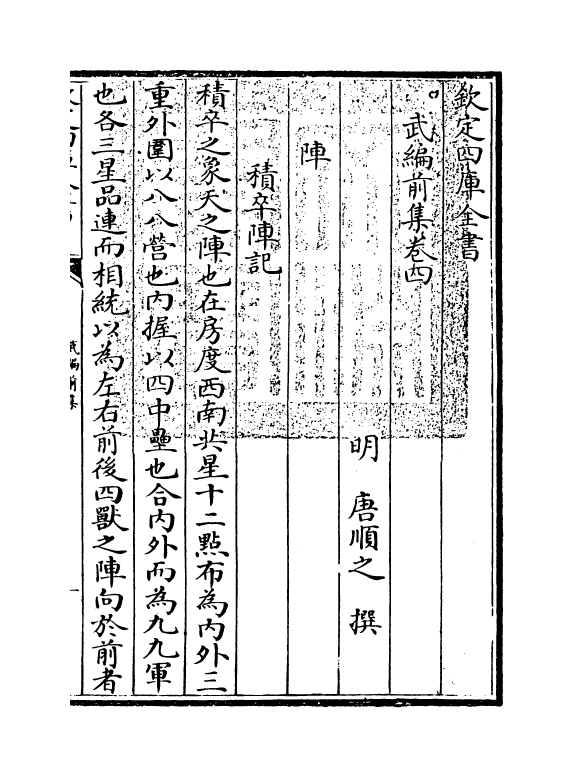 欽定四庫全書
武編前集卷四
明 唐順之 撰
陣
積卒陣記
積卒之象天之陣也在房度西南共星十二㸃布為内外三
重外圍以八八營也内握以四中壘也合内外而為九九軍
也各三星品連而相統以為左右前後四獸之陣向於前者
武編前集
一